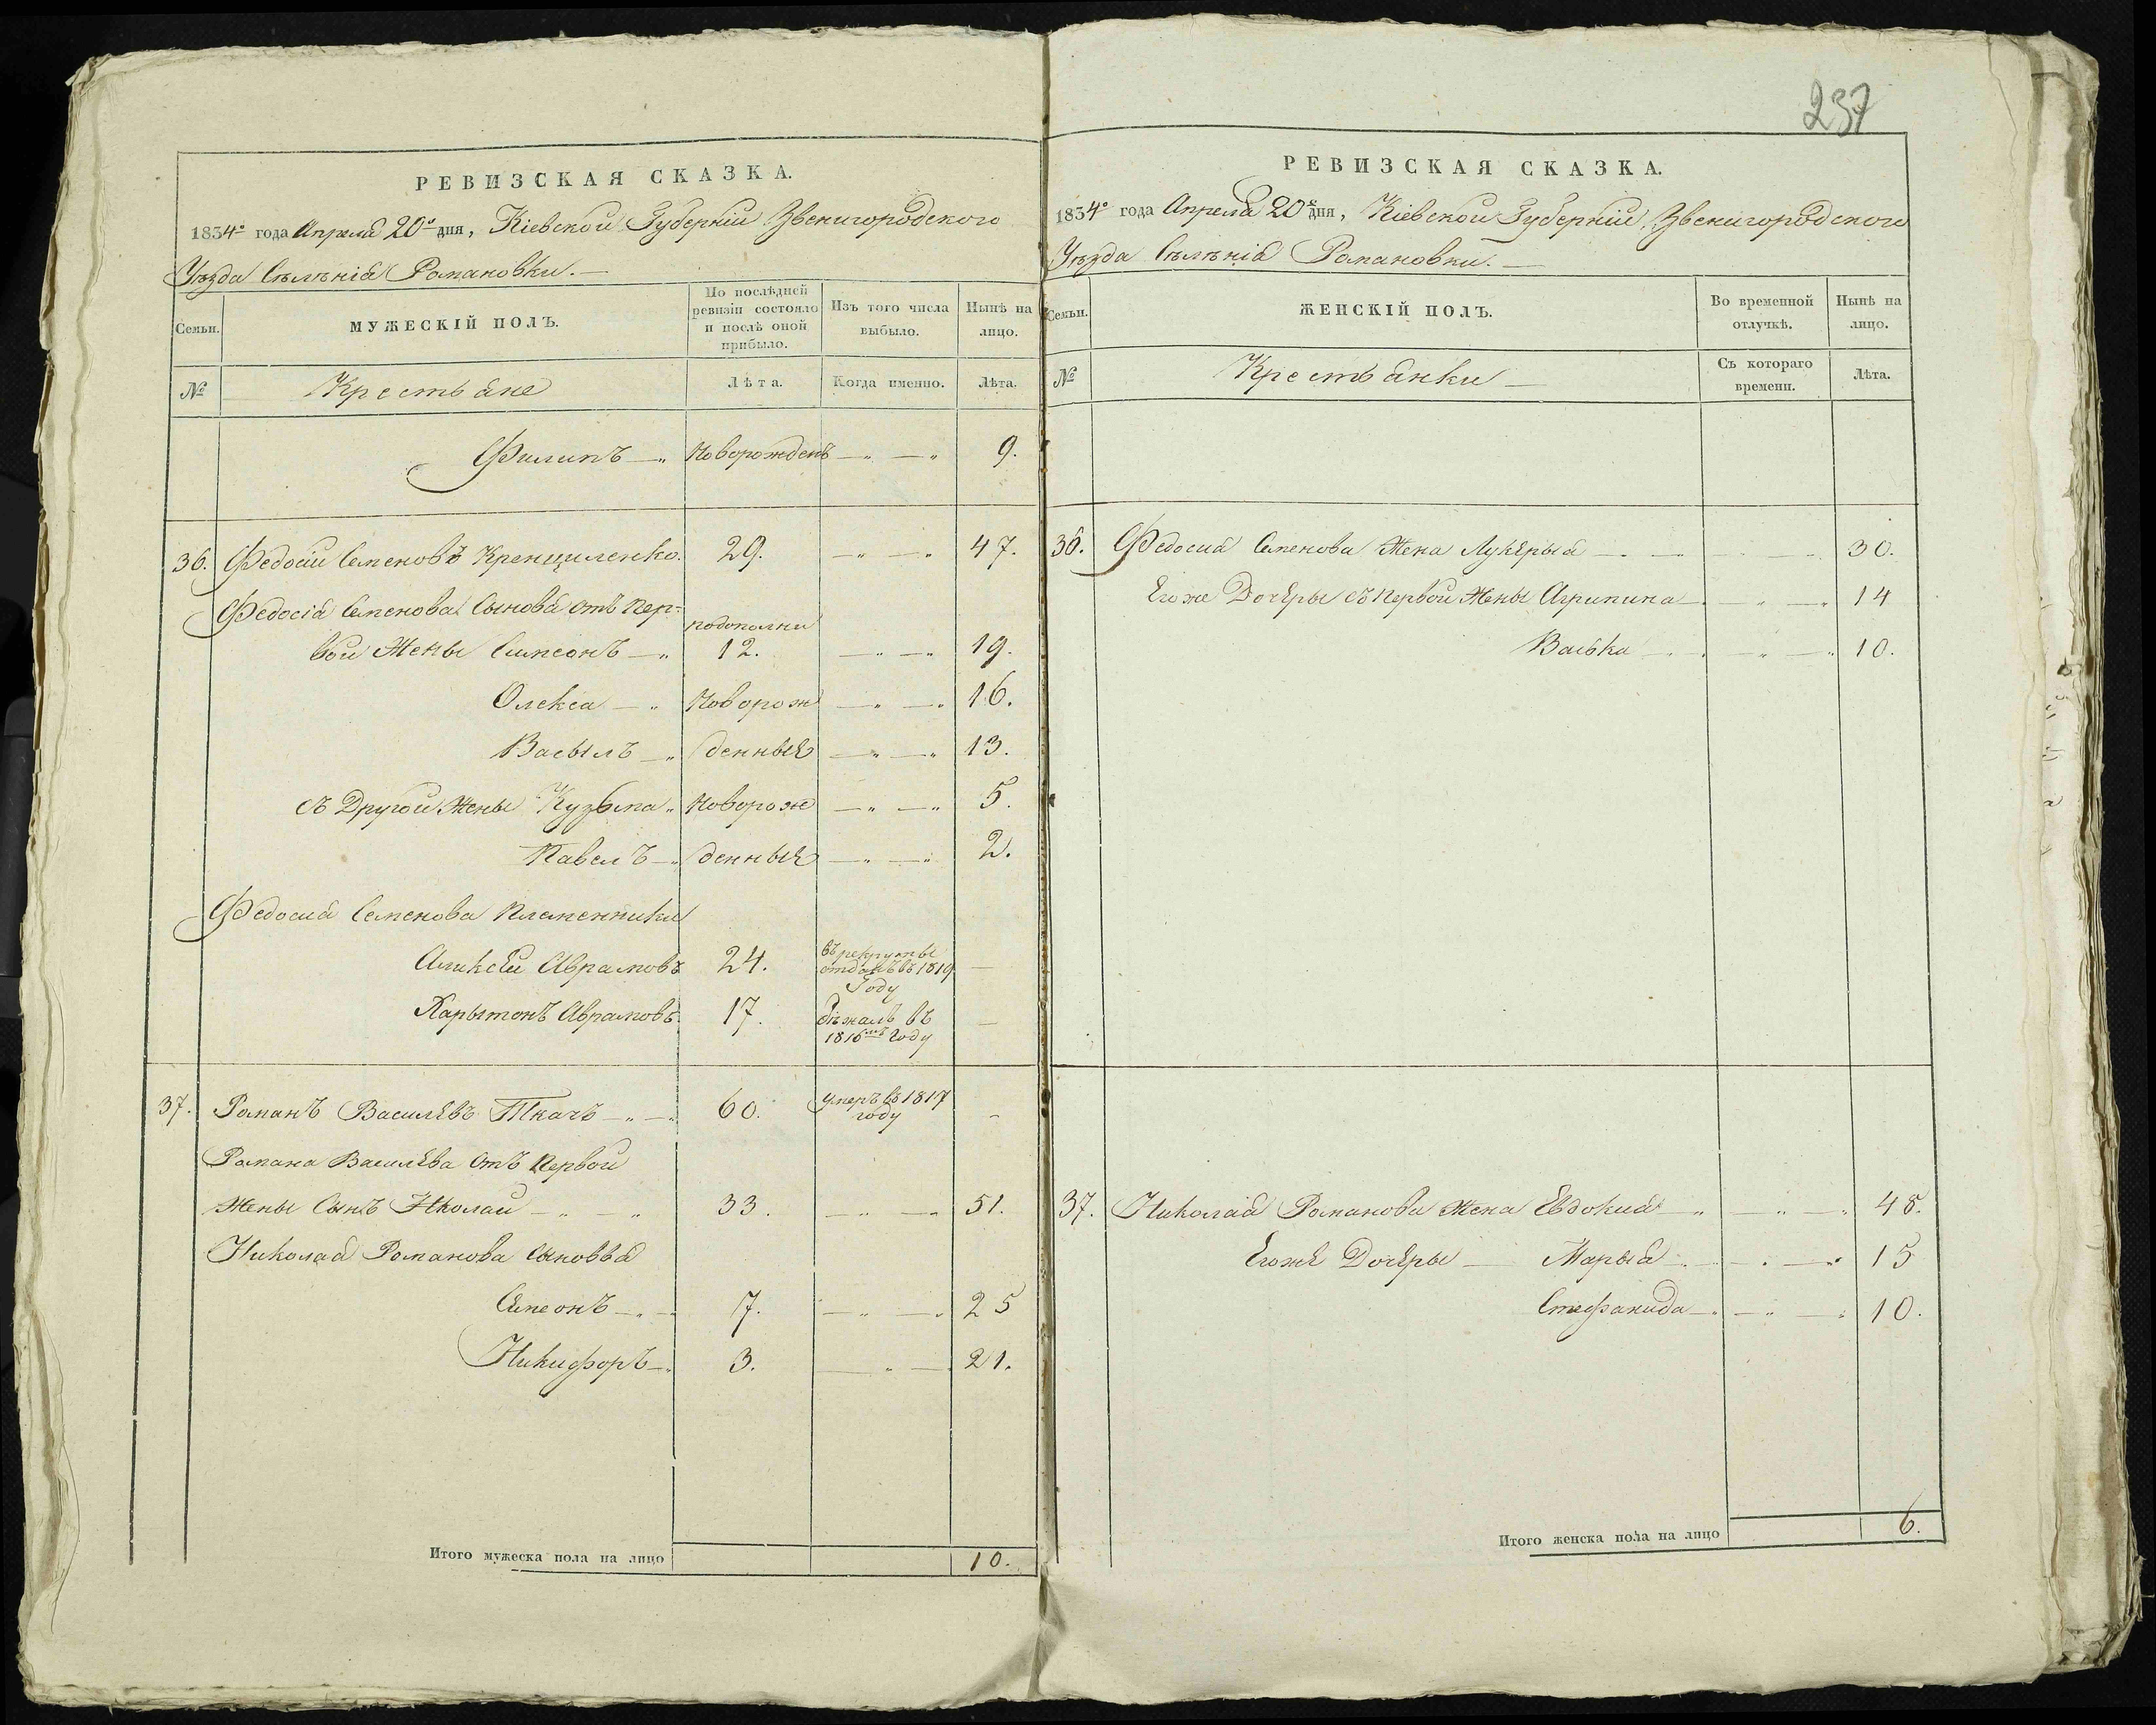 237
РЕВИЗСКАЯ СКАЗКА.
1834го года Апреля 20го дня, Кіевской Губерніи Звенигородского
Уѣзда Сѣлѣнія Романовки.
Семьи.
МУЖЕСКІЙ ПОЛЪ.
По послѣдней ревизіи состояло и послѣ оной прибыло.
Изъ того числа выбыло.
Нынѣ на лицо.
№
Крестьяне
Лѣта.
Когда именно.
Лѣта.
Филипъ — Новорожденъ — 9.
36. Федосій Семеновъ Кренциленко. 29. — 47.
Федосія Семенова Сыновя отъ пер-
вой Жены Симеонъ — подополни 12. — 19.
Олекса — Новорож — 16.
Васылъ — денные — 13.
съ Другой Жены Кузьма — Новорож — 5.
Павелъ — денные — 2.
Федосия Семенова Племенники
Аликсей Аврамовъ 24. въ рекруты отданъ въ 1819 Году —
Харытонъ Аврамовъ 17. бѣжалъ въ 1816мъ Году —
37. Романъ Василевъ Ткачъ — 60. умеръ въ 1817 году —
Романа Василева Отъ первой
Жены Сынъ Николай — 33. — 51.
Николая Романова Сыновья
Семеонъ — 7. — 25
Никифоръ — 3. — 21.
Итого мужеска пола на лицо 10.
РЕВИЗСКАЯ СКАЗКА.
1834го года Апреля 20го дня, Кіевской Губерніи Звенигородского
Уѣзда Сѣлѣнія Романовки.
Семьи.
ЖЕНСКІЙ ПОЛЪ.
Во временной отлучкѣ.
Нынѣ на лицо.
№
Крестьянки
Съ котораго времени.
Лѣта.
36. Федосия Семенова Жена Лукерыя — 30.
Его же Дочеры съ первой Жены Агрипина — 14
Васька — 10.
37. Николая Романова Жена Евдокия — 48.
Егоже Дочеры — Марыя — 15
Стефанида — 10.
Итого женска пола на лицо 6.